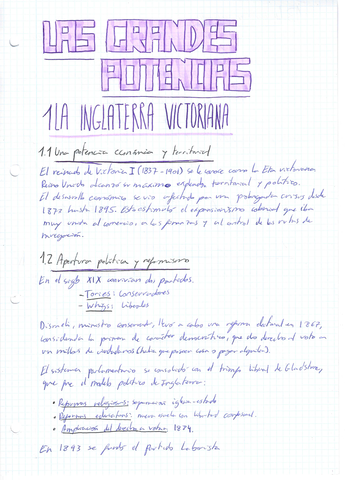 LAS GRANDES
POTENCIAS
1 LA INGLATERRA VICTORIANA
1.1 Una potencia económica y territorial
El reinado de Victoria I (1837-1901) se le conoce como la Era victoriana
Reino Unido alcanzó su máximo esplendor territorial y político.
El desarrollo económico se vio afectado por una prolongada crisis desde
1873 hasta 1895. Esta estimuló el expansionismo colonial que iba
muy unido al comercio, a las finanzas y al control de las rutas de
navegación.
1.2 Apertura política y reformismo
En el siglo XIX convivían dos partidos.
- Torces: conservadores
- Whigs: liberales
Disraeli, ministro conservador, llevó a cabo una reforma electoral en 1867,
considerada la primera de carácter democrático, que dio derecho al voto a
un millón de ciudadanos
El sistema parlamentario se consolidó con el triunfo liberal de Gladstone,
que fue el modelo político de Inglaterra:
• Reformas religiosas: separación iglesia-estado
• Reformas educativas: nueva escuela con libertad confesional.
• Ampliación del derecho a votar: 1884.
En 1893 se fundó el partido laborista